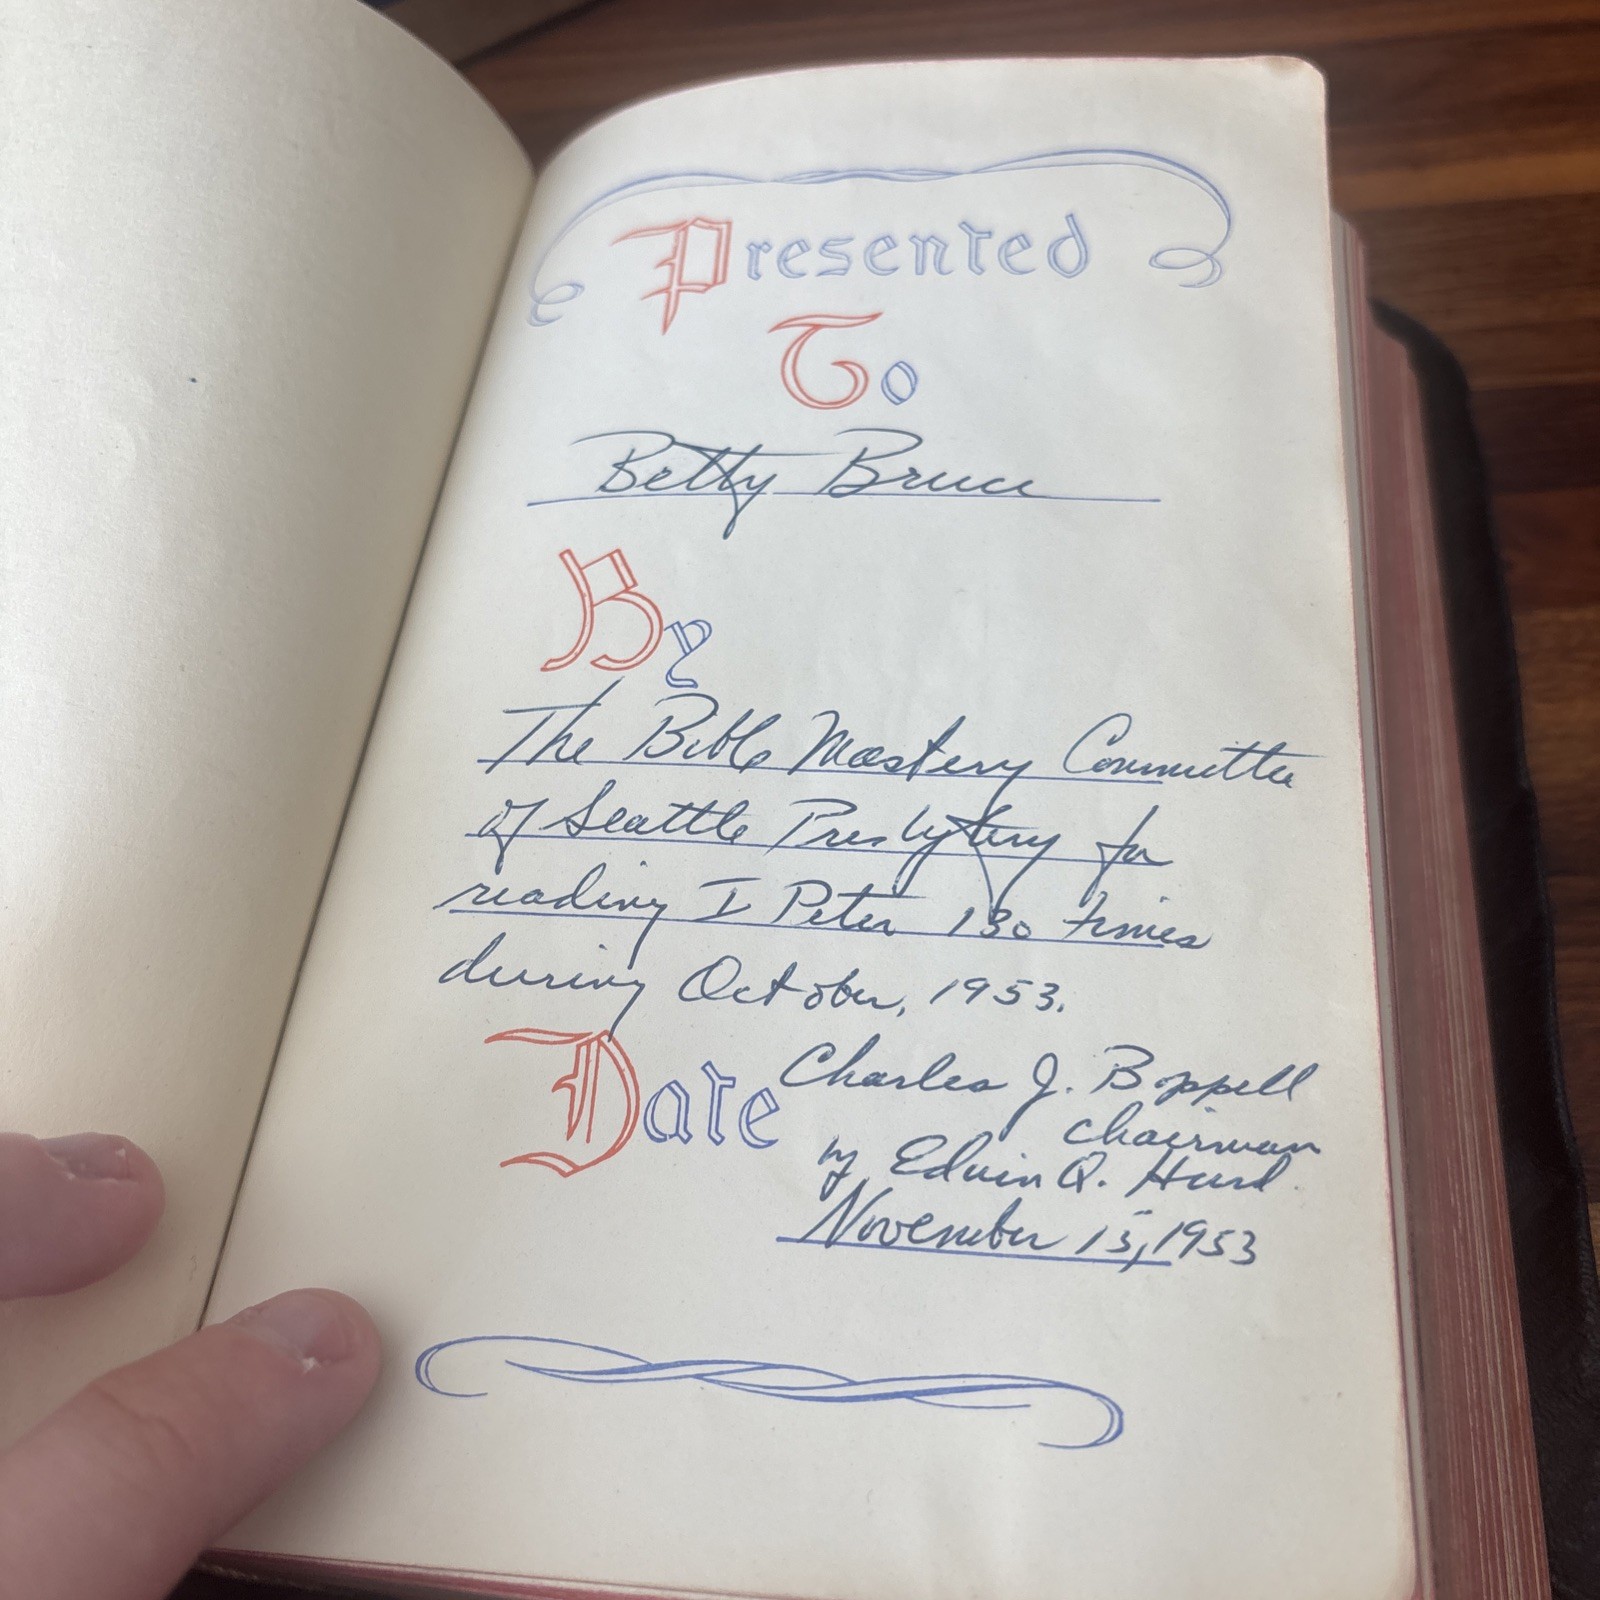 Presented
To
Betty Bruce
By
The Bible Mastery Committee
of Seattle Presbytery for
reading I Peter 130 times
during October, 1953.
Date
Charles J. Boppell
Chairman
by Edwin Q. Hurd.
November 15, 1953